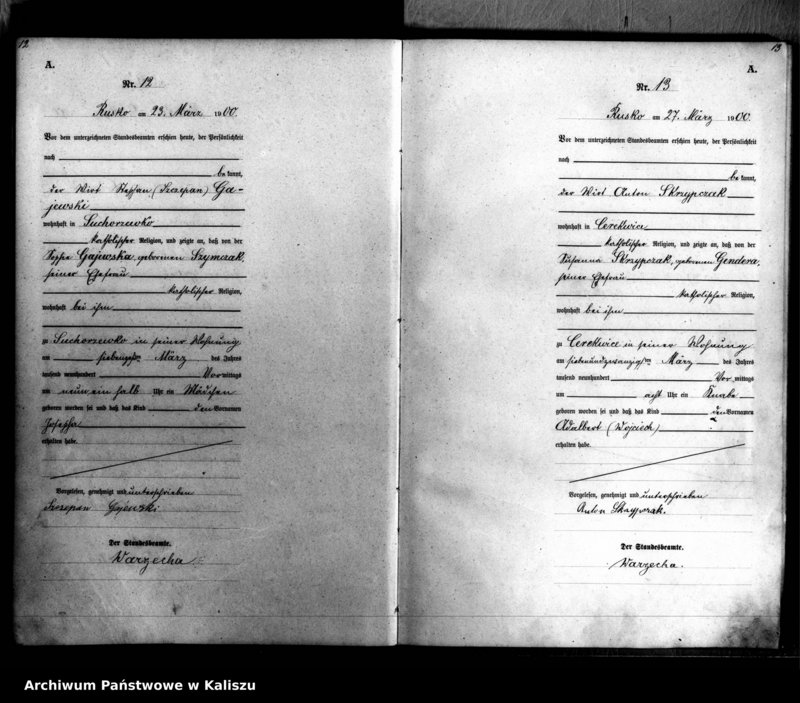 12
A.
Nr. 12
Rusko am 23. März 1900.
Vor dem unterzeichneten Standesbeamten erschien heute, der Persönlichkeit
nach
be kannt,
der Wirt Stephan (Szczepan) Ga-
jewski
wohnhaft in Suchorzewko
katholischer Religion, und zeigte an, daß von der
Gajewska, geborenen Szymczak,
seiner Ehefrau
katholischer Religion,
wohnhaft bei ihm
zu Suchorzewko in seiner Wohnung
am März des Jahres
tausend neunhundert Vor mittags
um neun ein halb Uhr ein Mädchen
geboren worden sei und daß das Kind den Vornamen
Josepha
erhalten habe.
Vorgelesen, genehmigt und unterschrieben
Szczepan Gajewski
Der Standesbeamte.
Warzecha
13
A.
Nr. 13
Rusko am 27. März 1900.
Vor dem unterzeichneten Standesbeamten erschien heute, der Persönlichkeit
nach
be kannt,
der Wirt Anton Skrzypczak
wohnhaft in Cerekwice
katholischer Religion, und zeigte an, daß von der
Susanna Skrzypczak, geborenen Gendera,
seiner Ehefrau
katholischer Religion,
wohnhaft bei ihm
zu Cerekwice in seiner Wohnung
am siebenundzwanzigsten März des Jahres
tausend neunhundert Vor mittags
um acht Uhr ein Knabe
geboren worden sei und daß das Kind den Vornamen
Adalbert (Wojciech)
erhalten habe.
Vorgelesen, genehmigt und unterschrieben
Anton Skrzypczak.
Der Standesbeamte.
Warzecha.
Archiwum Państwowe w Kaliszu